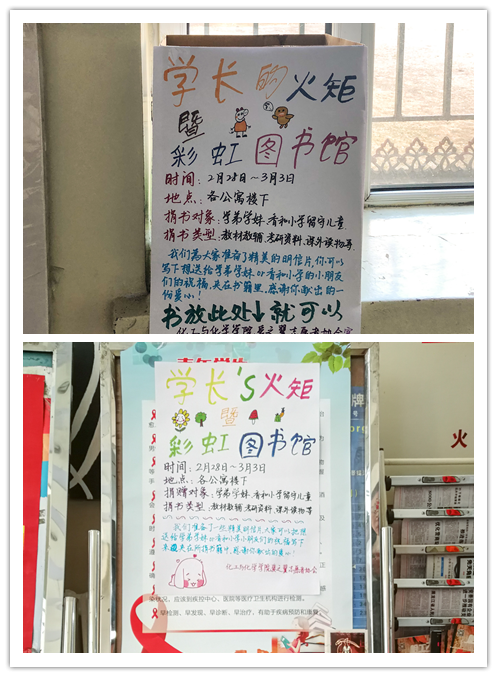 学长的火矩
暨
彩虹图书馆
时间：2月28日～3月3日
地点：各公寓楼下
捐书对象：学弟学妹、香和小学留守儿童
捐书类型：教材教辅、考研资料、课外读物等
我们为大家准备了精美的明信片，你可以
写下想送给学弟学妹or香和小学的小朋友
们的祝福，夹在书籍里，感谢你献出的一
份爱心！
书放此处↓就可以
化工与化学学院
学长's火矩
暨
彩虹图书馆
时间：2月28日～3月3日
地点：各公寓楼下
捐赠对象：学弟学妹、香和小学留守儿童
捐书类型：教材教辅、考研资料、课外读物等
我们准备了一些精美明信片，大家可以把想
送给学弟学妹or香和小学小朋友们的祝福写下
来夹在所捐书籍中，感谢你献出的爱心
化工与化学学院翼之翼志愿者协会
应该到疾控中心、医院等医疗卫生机构进行检测。
早检测、早发现、早诊断、早治疗，有助于疾病预防和康复
牌
火